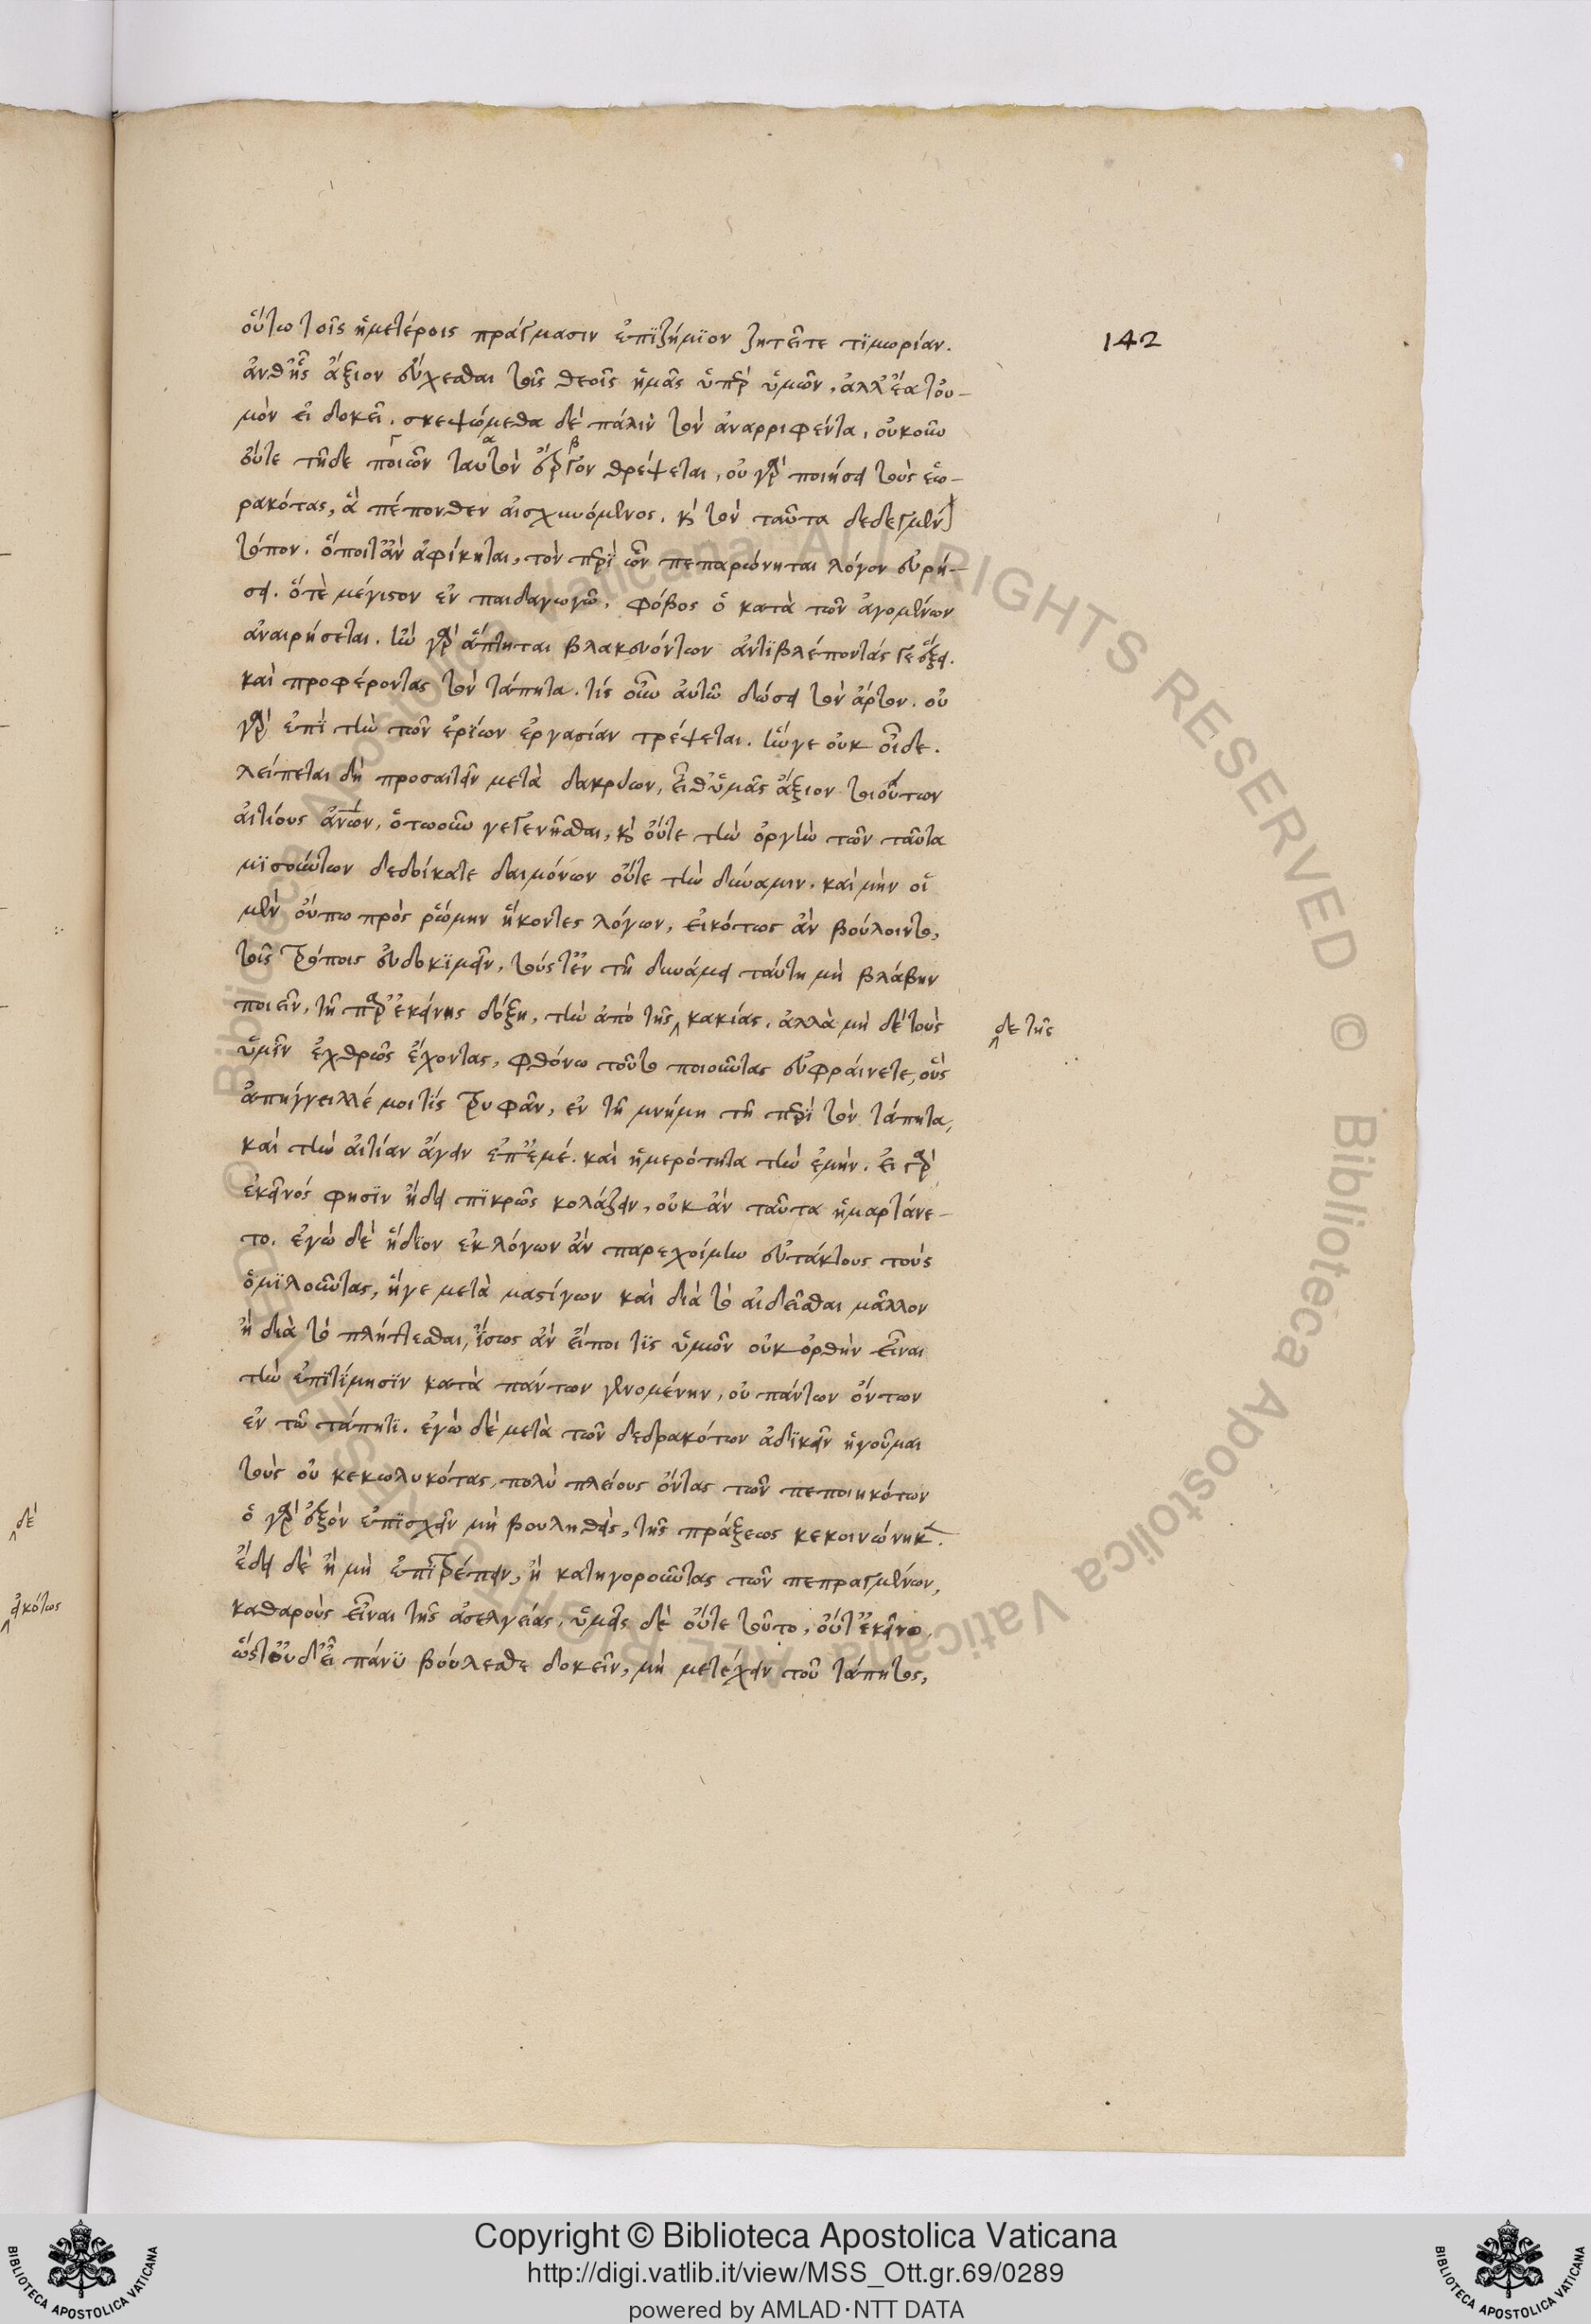 142
οὕτω τοῖς ἡμετέροις πράγμασιν ἐπϊζήμϊον ζητεῖτε τϊμωρίαν.
ἀνθ' ἧς ἄξιον εὔχεσθαι τοῖς θεοῖς ἡμᾶς ὑπὲρ ὑμῶν. ἀλλ' ἐατέου-
μὸν εἰ δοκεῖ. σκεψώμεθα δὲ πάλιν τὸν ἀναρριφέντα. οὐκοῦν
οὔτε τῆδε ποιῶν ταυτὸν ἔργον θρέψεται, οὐ γὰρ ποιήσει τοὺς ἑω-
ρακότας, ἃ πέπονθεν αἰσχυνόμενος. καὶ τὸν ταῦτα δεδεγμένον
τόπον. ὅποι τ' ἂν ἀφίκηται, τὸν περὶ ὧν πεπαρώνηται λόγον εὑρή-
σει. ὅ τὲ μέγιστον ἐν παιδαγωγῶ. φόβος ὁ κατὰ τῶν ἀγομένων
ἀναιρήσεται. ἢν γὰρ ἅπτηται βλακευόντων ἀντϊβλέποντάς γε ἕξει.
καὶ προφέροντας τὸν τάπητα. τίς οὖν αὐτῶ δώσει τὸν ἄρτον. οὐ
γὰρ ἐπὶ τὴν τῶν ἐρϊων ἐργασίαν τρέψεται. ἥν γε οὐκ οἶδε.
λείπεται δὴ προσαιτεῖν μετὰ δακρύων, εἶθ' ὑμᾶς ἄξιον τοιούτων
αἰτίους ἀνων, ὁτωοῦν γεγενῆσθαι, καὶ οὔτε τὴν ὀργὴν τῶν ταῦτα
μϊσούντων δεδοίκατε δαιμόνων οὔτε τὴν δύναμιν. καὶ μὴν οἱ
μὲν οὔπω πρὸς ῥώμην ἥκοντες λόγων, εἰκότως ἂν βούλοιντο,
τοῖς τρόποις εὐδοκϊμεῖν, τούς τ' ἐν τῆ δυνάμει ταύτη μὴ βλάβην
ποιεῖν, τῆ παρ' ἐκείνης δόξη, τὴν ἀπὸ τῆς κακίας. ἀλλὰ μὴ δὲ τοὺς
δε τῆς
ὑμῖν ἐχθρῶς ἔχοντας, φθόνω τοῦτο ποιοῦντας εὐφραίνετε, οὓς
ἀπήγγειλέ μοι τϊς τρυφᾶν, ἐν τῆ μνήμη τῆ περὶ τὸν τάπητα,
καὶ τὴν αἰτίαν ἄγειν ἐπ' ἐμέ. καὶ ἡμερότητα τὴν ἐμήν. εἰ γὰρ
ἐκεῖνός φησϊν ἤδει πϊκρῶς κολάζειν, οὐκ ἂν ταῦτα ἡμαρτάνε-
το. ἐγὼ δὲ ἥδϊον ἐκ λόγων ἂν παρεχοίμην εὐτάκτους τοὺς
ὁμϊλοῦντας, ἤ γε μετὰ μαστίγων καὶ διὰ τὸ αἰδεῖσθαι μᾶλλον
ἢ διὰ τὸ πλήττεσθαι, ἴσως ἂν εἴποι τϊς ὑμῶν οὐκ ὀρθὴν εἶναι
τὴν ἐπϊτίμησϊν κατὰ πάντων γενομένην, οὐ πάντων ὄντων
ἐν τῶ τάπητϊ. ἐγὼ δὲ μετὰ τῶν δεδρακότων ἀδϊκεῖν ἡγοῦμαι
τοὺς οὐ κεκωλυκότας, πολὺ πλείους ὄντας τῶν πεποιηκότων
ὁ γὰρ ἐξὸν ἐπϊσχεῖν μὴ βουληθεὶς, τῆς πράξεως κεκοινώνηκε.
ἔδει δὲ ἢ μὴ ἐπϊτρέπειν, ἢ κατηγοροῦντας τῶν πεπραγμένων,
καθαροὺς εἶναι τῆς ἀσελγείας, ὑμεῖς δὲ οὔτε τοῦτο, οὔτ' ἐκεῖνο.
ὥστ' οὐδ' εἰ πάνϋ βούλεσθε δοκεῖν, μὴ μετέχειν τοῦ τάπητος,
δὲ
εἰκότως
Copyright © Biblioteca Apostolica Vaticana
http://digi.vatlib.it/view/MSS_Ott.gr.69/0289
powered by AMLAD·NTT DATA
BIBLIOTECA APOSTOLICA VATICANA
BIBLIOTECA APOSTOLICA VATICANA